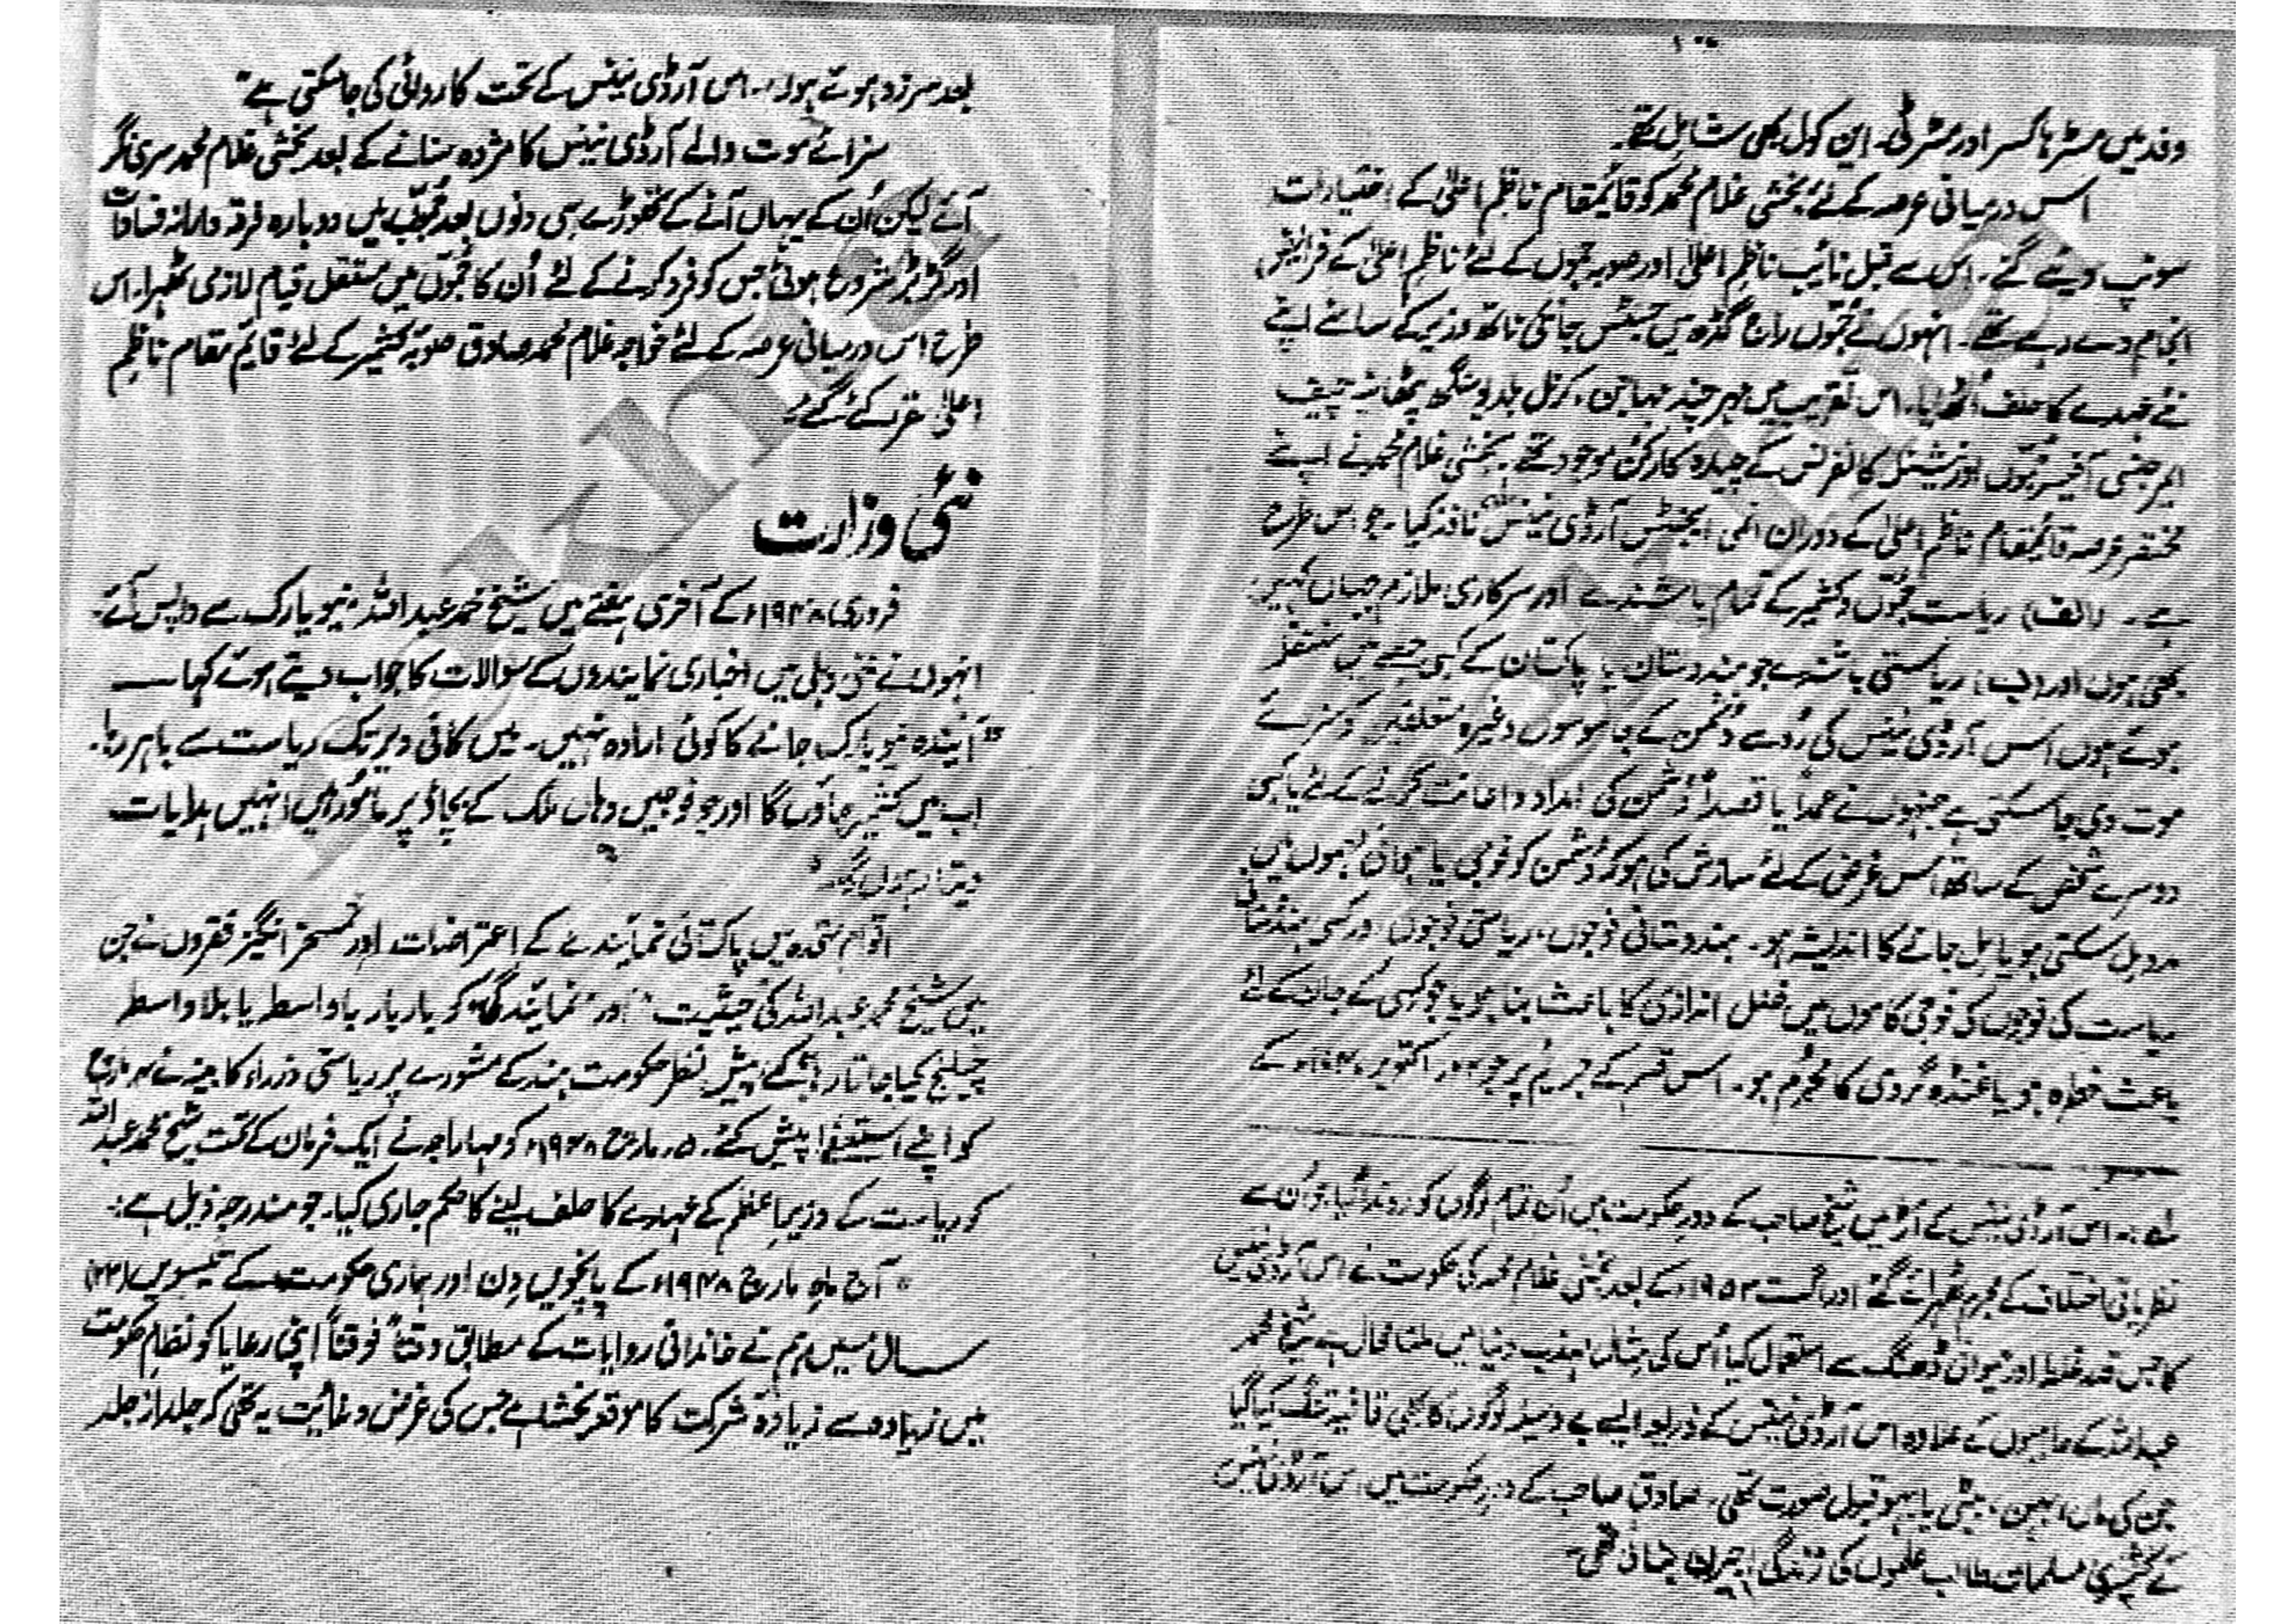 ۱۰۰
وفد میں مسٹر ہاکسر اور مسٹر ڈی۔ این کول بھی شامل تھے۔
اس درمیانی عرصہ کے لئے بخشی غلام محمد کو قائمقام ناظم اعلیٰ کے اختیارات
سونپ دیئے گئے۔ اس سے قبل نائب ناظم اعلیٰ اور صوبہ جموں کے لئے ناظم اعلیٰ کے فرائض
انجام دے رہے تھے۔ انہوں نے جموں راج گڈھ میں جسٹس جانکی ناتھ وزیر کے سامنے اپنے
نئے عہدے کا حلف اُٹھا لیا۔ اس تقریب میں مہر چند مہاجن، کرنل بلدیو سنگھ پٹھانیہ چیف
ایمرجنسی آفیسر جموں اور نیشنل کانفرنس کے چیدہ کارکن موجود تھے۔ بخشی غلام محمد نے اپنے
مختصر عرصہ قائمقام ناظم اعلیٰ کے دوران انمی ایجنٹس آرڈی نینس نافذ کیا۔ جو اس طرح
ہے۔ (الف) ریاست جموں و کشمیر کے تمام باشندے اور سرکاری ملازم جہاں کہیں
بھی ہوں اور (ب) ریاستی باشندے جو ہندوستان یا پاکستان کے کسی حصے میں مقیم
ہوئے ہوں اس آرڈی نینس کی رُو سے دشمن کے جاسوسوں وغیرہ متعلقین کو سزائے
موت دی جا سکتی ہے جنہوں نے عمداً یا قصداً دُشمن کی امداد و اعانت کرنے کے لئے یا کسی
دوسرے شخص کے ساتھ اس غرض کے لئے سازش کی ہو کہ دُشمن کو فوجی یا ہوائی مہموں میں
مدد مل سکتی ہو یا مل جانے کا اندیشہ ہو۔ ہندوستانی فوجوں، ریاستی فوجوں اور کسی ہندوستانی
ریاست کی فوجوں کی فوجی کاموں میں خلل اندازی کا باعث بنا ہو یا جو کسی کے جان کے لئے
باعث خطرہ ہو یا غنڈہ گردی کا مجرم ہو۔ اس قسم کے جرائم پر جو اکتوبر ۱۹۴۷ء کے
لے :۔ اس آرڈی نینس کے آڑ میں شیخ صاحب کے دورِ حکومت میں اُن تمام لوگوں کو روندا گیا جو اُن سے
نظریاتی اختلاف کے مجرم ٹھہرائے گئے اور اگست ۱۹۵۳ء کے بعد بخشی غلام محمد کی حکومت نے اس آرڈی نینس
کا جس قدر غلط اور حیوانی ڈھنگ سے استعمال کیا اُس کی مثال مہذب دنیا میں ملنا محال ہے شیخ محمد
عبداللہ کے حامیوں کے علاوہ اس آرڈی نینس کے ذریعہ ایسے بے وسیلہ لوگوں کا بھی قافیہ تنگ کیا گیا
جن کی ماں، بہن، بیٹی یا بہو قبول صورت تھی۔ صادق صاحب کے دورِ حکومت میں اس آرڈی نینس
نے کشمیری مسلمان طالب علموں کی زندگی اجیرن بنائی تھی۔
بعد سرزد ہوئے ہوں۔ اس آرڈی نینس کے تحت کاروائی کی جا سکتی ہے"
سزائے موت والے آرڈی نینس کا مژدہ سنانے کے بعد بخشی غلام محمد سری نگر
آئے لیکن اُن کے یہاں آنے کے تھوڑے ہی دنوں بعد جموں میں دوبارہ فرقہ وارانہ فسادات
اور گڑبڑ شروع ہوئی جس کو فرو کرنے کے لئے اُن کا جموں میں مستقل قیام لازمی ٹھہرا۔ اس
طرح اس درمیانی عرصہ کے لئے خواجہ غلام محمد صادق صوبہ کشمیر کے لئے قائم مقام ناظم
اعلیٰ مقرر کئے گئے۔
نئی وزارت
فروری ۱۹۴۸ء کے آخری ہفتے میں شیخ محمد عبداللہ نیو یارک سے واپس آئے۔
انہوں نے نئی دہلی میں اخباری نمایندوں کے سوالات کا جواب دیتے ہوئے کہا —
"آیندہ نیو یارک جانے کا کوئی ارادہ نہیں۔ میں کافی دیر تک ریاست سے باہر رہا۔
اب میں کشمیر جاؤں گا اور جو فوجیں وہاں ملک کے بچاؤ پر مامور ہیں انہیں ہدایات
دیتا رہوں گا۔"
اقوام متحدہ میں پاکستانی نمایندے کے اعتراضات اور تمسخر انگیز فقروں نے جن
میں شیخ محمد عبداللہ کی "حیثیت" اور "نمایندگی" کو بار بار باواسطہ یا بلاواسطہ
چیلنج کیا جاتا رہا، کے پیش نظر حکومت ہند کے مشورے پر ریاستی وزراء کابینہ نے مارچ
کو اپنے استعفے پیش کئے۔ ۵ مارچ ۱۹۴۸ء کو مہاراجہ نے ایک فرمان کے تحت شیخ محمد عبداللہ
کو ریاست کے وزیر اعظم کے عہدے کا حلف لینے کا حکم جاری کیا۔ جو مندرجہ ذیل ہے:۔
"آج ماہ مارچ ۱۹۴۸ء کے پانچویں دن اور ہماری حکومت کے تئیسویں (۲۳)
سال میں ہم نے خاندانی روایات کے مطابق وقتاً فوقتاً اپنی رعایا کو نظام حکومت
میں زیادہ سے زیادہ شرکت کا موقعہ بخشا ہے جس کی غرض و غائیت یہ تھی کہ جلد از جلد